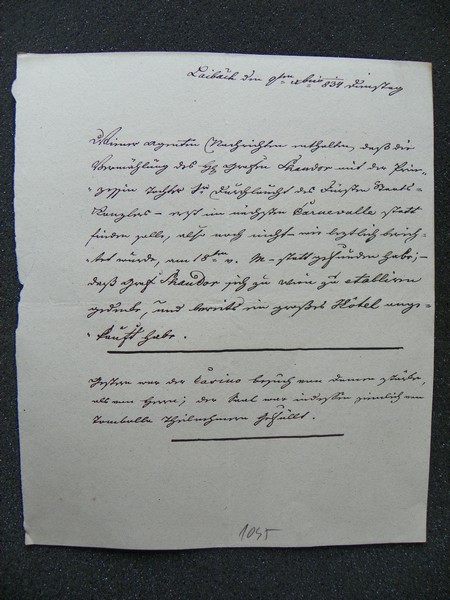 Laibach den 9ten xbris 834 Dinstag
Wiener Agenten Nachrichten enthalten, daß die
Vermählung des H Grafen Sandor mit der Prin-
zessin Tochter Sr Durchlaucht des Fürsten Staats-
Kanzlers – erst im nächsten Carnevalle statt
finden solle, also noch nicht – wie letzlich berich-
tet wurde, am 18ten v. M – statt gefunden habe; –
daß Graf Sandor sich zu Wien zu etabliren
gedenke, und bereits ein großes Hôtel ange-
kauft habe.
Gestern war der Casino besuch von Damen stärker,
als von Herrn; der Saal war indessen ziemlich von
Tombolla Theilnehmern gefüllt.
1045